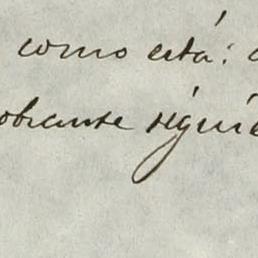 como está:
obrante siguie